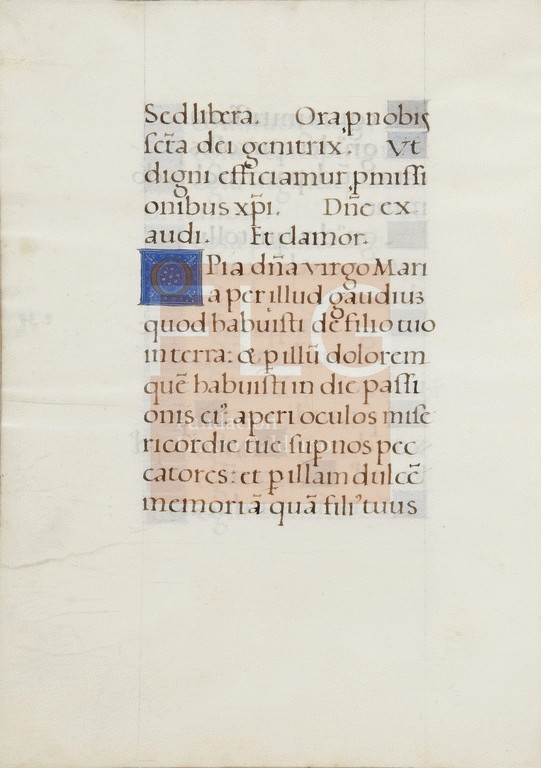 Sed libera. Ora ꝓ nobis
sc̄ta dei genitrix. Vt
digni efficiamur ꝓmissi
onibus xp̄i. Dn̄e ex
audi. Et clamor.
O Pia dn̄a virgo Mari
a per illud gaudiuꝫ
quod habuisti de filio tuo
in terra: & ꝑ illū dolorem
quē habuisti in die passi
onis eiꝰ aperi oculos mise
ricordie tue suꝑ nos pec
catores: et ꝑ illam dulcē
memoriā quā filiꝰ tuus
FLG